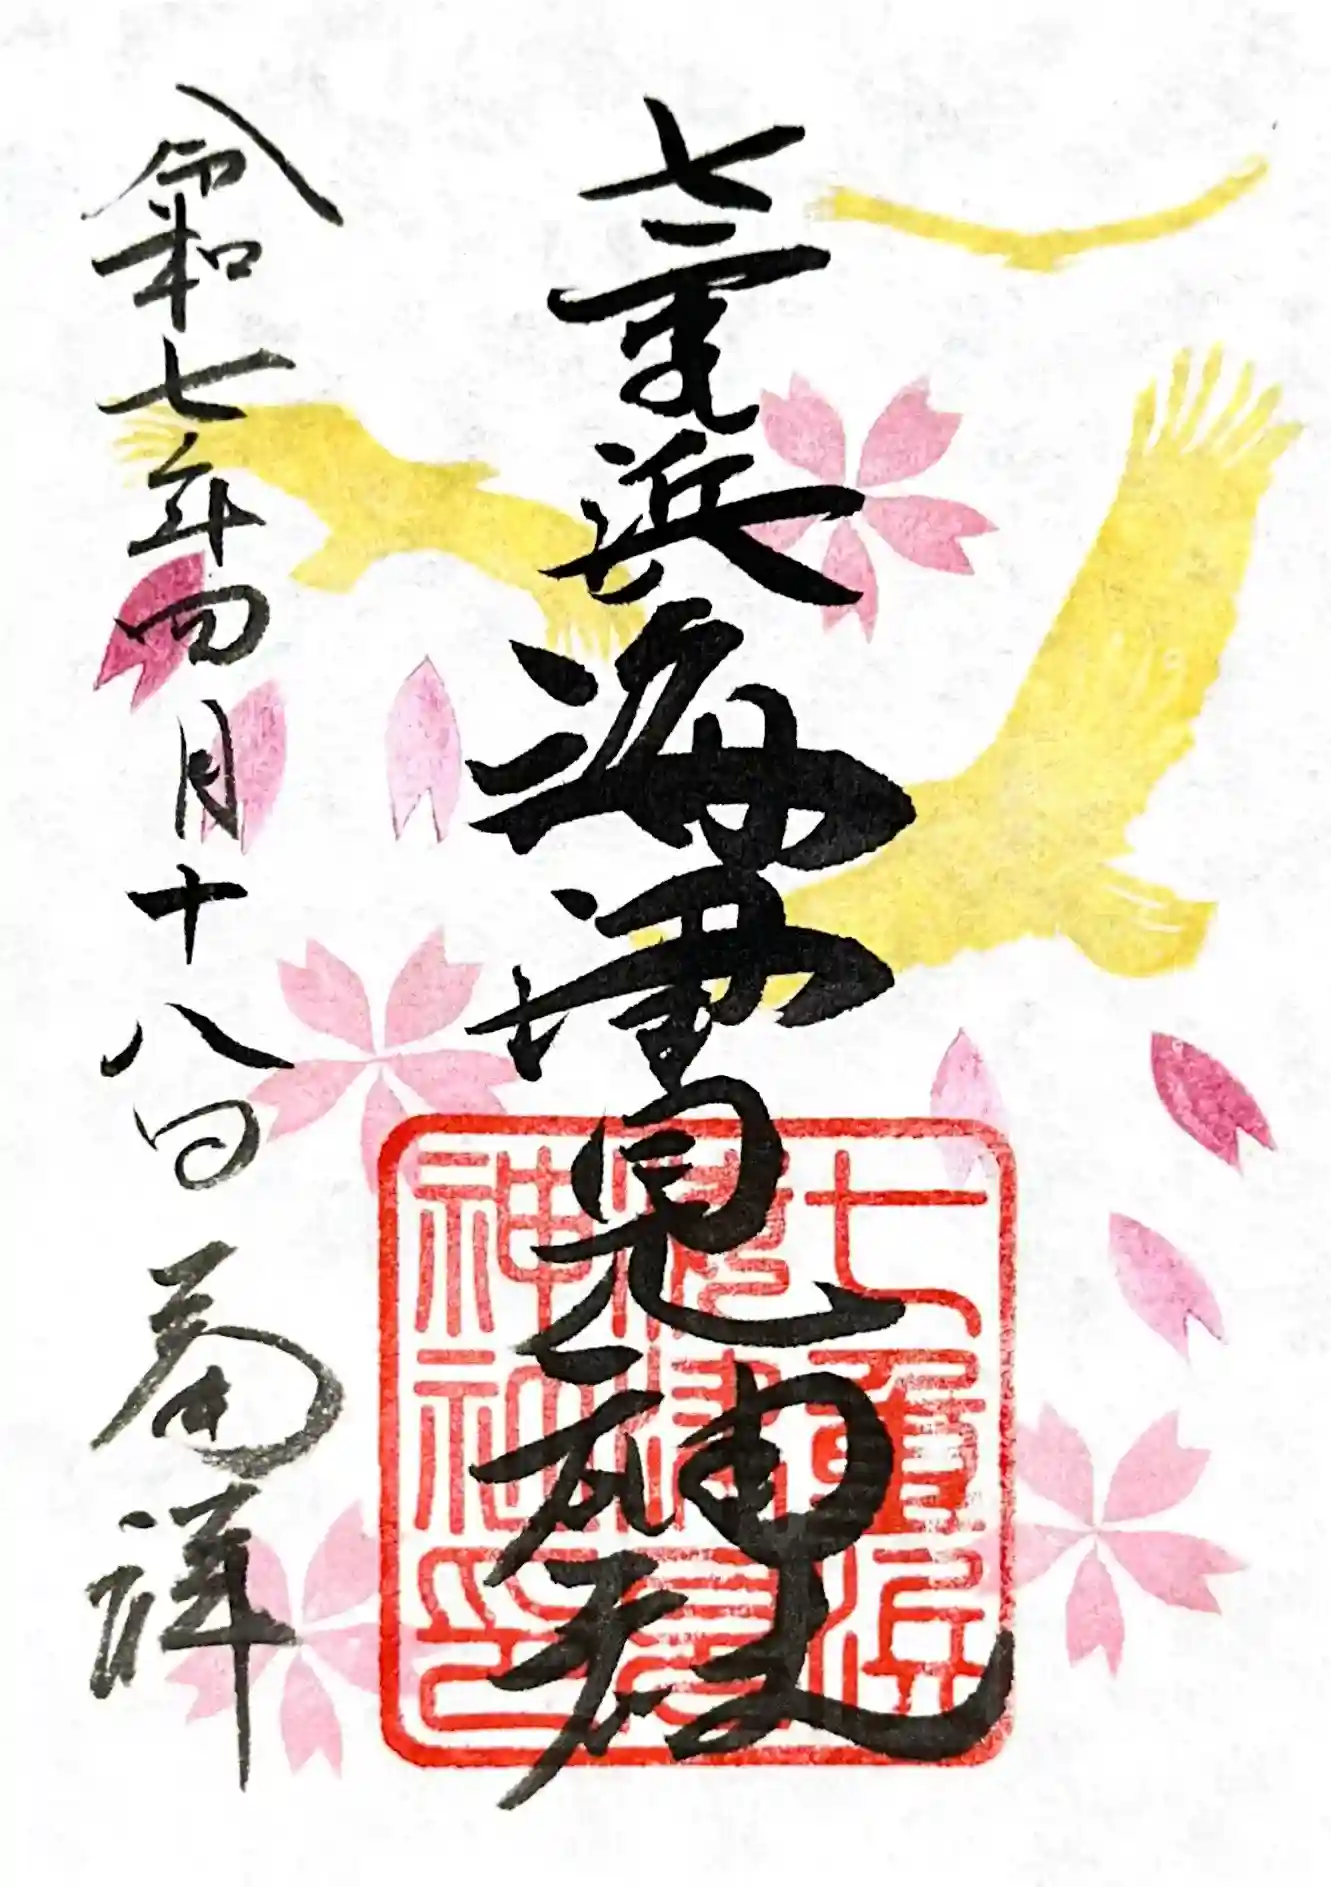 七重浜海津見神社
七重浜
海津見
神社印
令和七年四月十八日